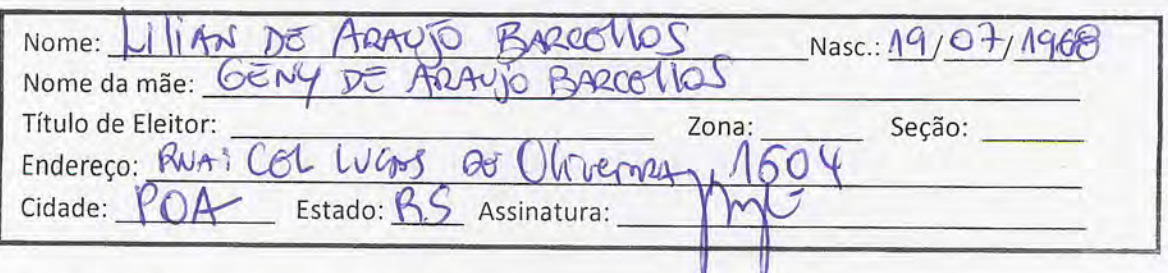 Nome: LILIAN DE ARAUJO BARCELLOS Nasc.: 19/07/1968
Nome da mãe: GENY DE ARAUJO BARCELLOS
Título de Eleitor: Zona: Seção:
Endereço: RUA: CEL LUCAS DE OliveiRA, 1604
Cidade: POA Estado: RS Assinatura: